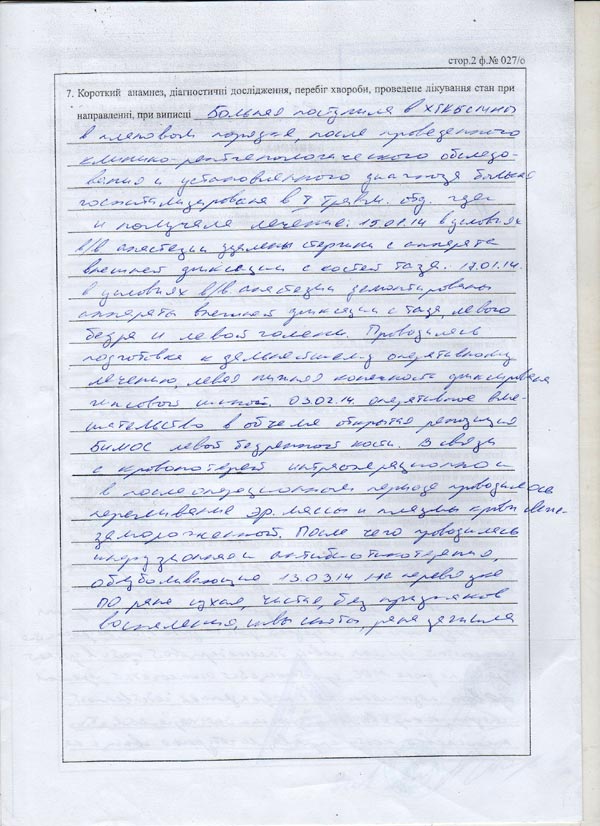 стор.2 ф.№ 027/о
7. Короткий анамнез, діагностичні дослідження, перебіг хвороби, проведене лікування стан при
направленні, при виписці Больная поступила в
в плановом порядке, после проведенного
клинико-рентгенологического обследо-
вания и установленного диагноза больная
госпитализирована в травм. отд. где
и получала лечение: 15.01.14 в условиях
в/в анестезии удалены стержни с аппарата
внешней фиксации с костей таза. 17.01.14.
в условиях в/в анестезии демонтированы
аппараты внешней фиксации с таза, левого
бедра и левой голени. Проводилась
подготовка к дальнейшему оперативному
лечению, левая нижняя конечность фиксирована
гипсовой шиной. 03.02.14. оперативное вме-
шательство в объеме открытая репозиция
БИМОС левой бедренной кости. В связи
с кровопотерей интраоперационно и
в послеоперационном периоде проводилось
переливание эр. массы и плазмы крови свеже-
замороженной. После чего проводилась
инфузионная и антибиотикотерапия,
обезболивающие 13.03.14 на перевязке
п/о рана сухая, чистая, без признаков
воспаления, швы сняты, рана зажила